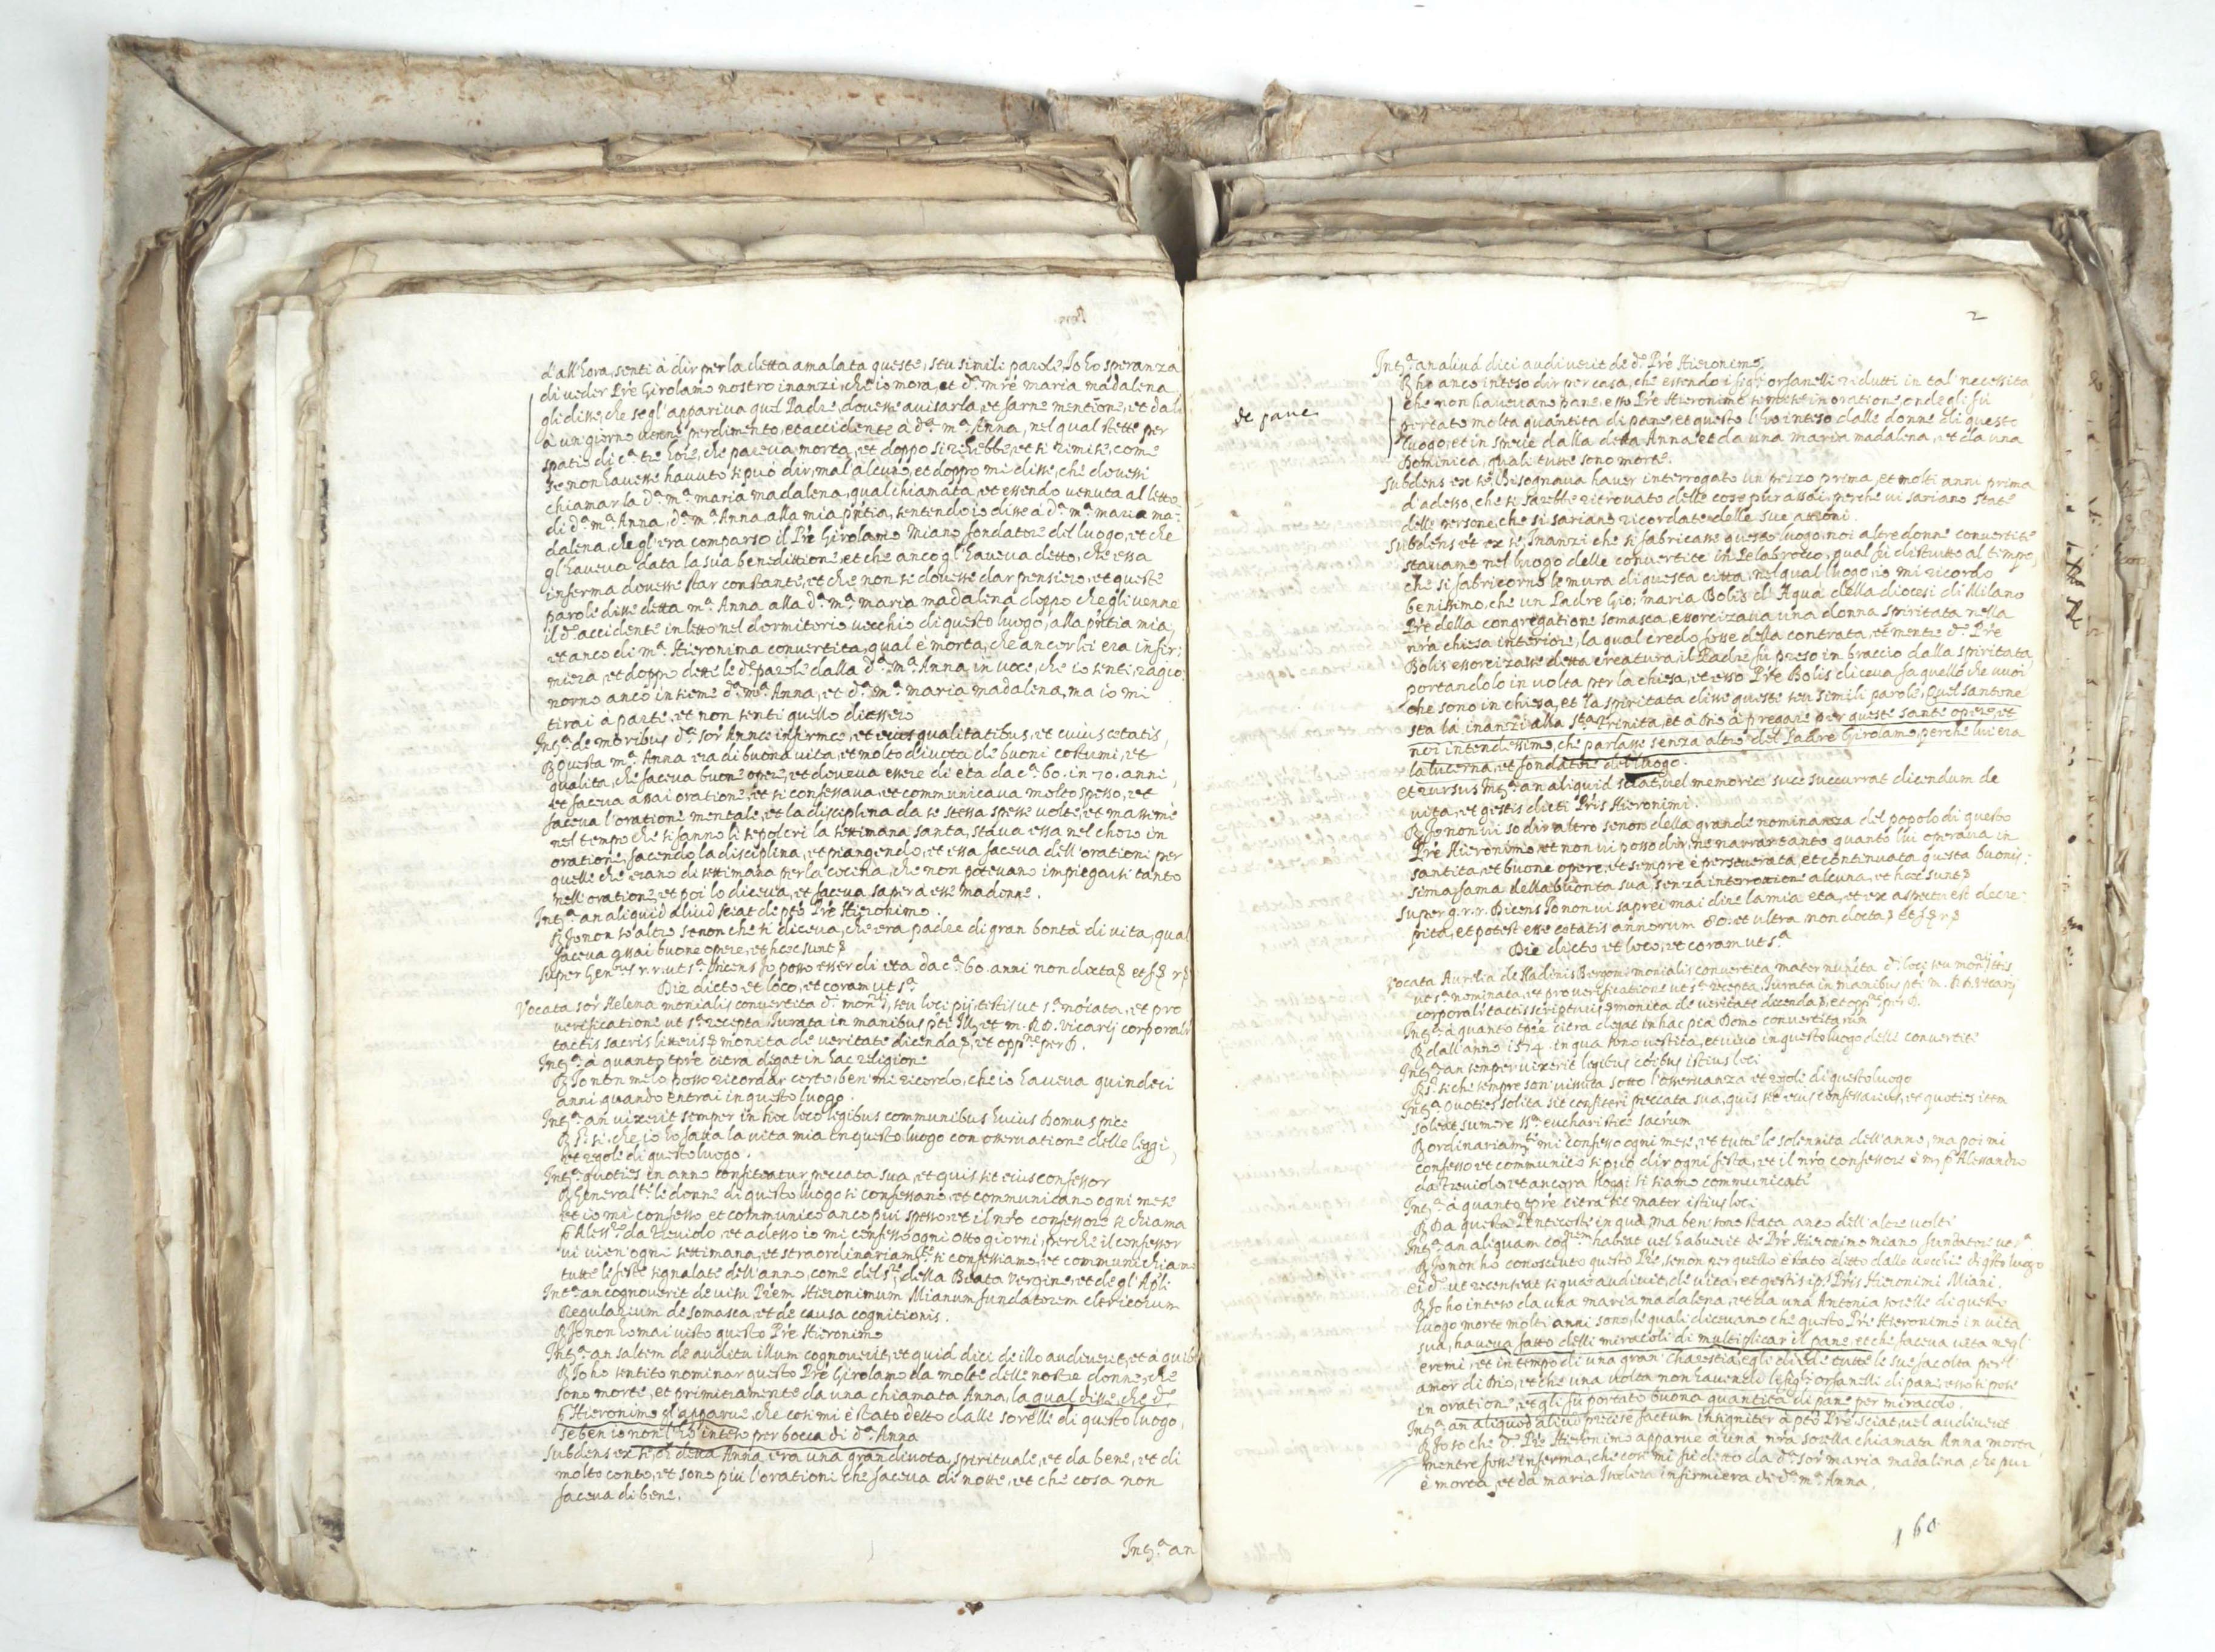 d'all'hora, senti à dir per la detta amalata queste, seu simili parole Io ho speranza
di veder Prè Girolamo nostro inanzi, che io mora, et d.ª m.re maria madalena
gli disse, che se gl'appariva quel Padre, dovesse avisarla, et farne mentione, et da li
à un giorno venne perdimento, et accidente à d.ª m.ª Anna, nel qual stette per
spatio di c.ª tre hore, che pareva morta, et doppo si rehebbe, et si rimise, come
se non havesse havuto si può dir, mal alcuno, et doppo mi disse, che dovessi
chiamar la d.ª m.ª maria madalena, qual chiamata, et essendo venuta al letto
di d.ª m.ª Anna, d.ª m.ª Anna, alla mia pñtia, sentendo io disse à d.ª m.ª maria ma=
dalena, che gl'era comparso il Prè Girolamo Miano fondatore del luogo, et che
gl'haveva data la sua benedittione, et che anco gl'haveva detto, che essa
inferma dovesse star constante, et che non se dovesse dar pensiero, et queste
parole disse detta m.ª Anna alla d.ª m.ª maria madalena doppo che gli venne
il d.º accidente in letto nel dormitorio vecchio di questo luogo, alla pñtia mia,
et anco di m.ª Hieronima convertita, qual è morta, che ancor lei era infir:
miera, et doppo dette le d.e parole dalla d.ª m.ª Anna, in voce, che io senti, ragio:
norno anco insieme d.ª m.ª Anna, et d.ª m.ª maria madalena, ma io mi
tirai à parte, et non senti quello dicessero
Int.ª de moribus d.ę sor Annę infirmę, et eius qualitatibus, et cuius ętatis,
R Questa m.ª Anna era di buona vita, et molto divota de buoni costumi, et
qualita, che faceva buone opere, et doveva essere di età da c.ª 60. in 70. anni,
et faceva assai oratione, et si confessava, et communicava molto spesso, et
faceva l'oratione mentale, et la disciplina da se stessa spesse volte, et massime
nel tempo che si fanno li sepolcri la settimana santa, stava essa nel choro in
oratione, facendo la disciplina, et piangendo, et essa faceva dell'orationi per
quelle che erano di settimana per la cocina, che non potevano impiegarsi tanto
nell'oratione, et poi lo diceva, et faceva saper à esse madonne.
Int.ª an aliquid aliud sciat de pto Prè Hieronimo.
R Io non so altro senon che si diceva, che era padre di gran bontà di vita, qual
faceva assai buone opere, et hęc sunt &
Super gen.bus r. r. ut s.ª dicens Io posso esser di età da c.ª 60. anni non docta & et s & r &
Die dicto et loco, et coram ut s.ª
Vocata sor Helena monialis convertita d.i mon.rij, seu loci pij, testis ut s.ª nõiata, et pro
verificatione ut s.ª recepta, Iurata in manibus p.ti Ill. et m. R. D. Vicarij corporalr
tactis sacris litteris & monita de veritate dicenda &, et opp.ne per D.
Int.ª à quanto tpre citra degat in hac religione
R Io non melo posso ricordar certo, ben mi ricordo, che io haveva quindeci
anni quando entrai in questo luogo.
Int.ª an vixerit semper in hoc loco legibus communibus huius Domus pię
R S.r si, che io ho fatta la vita mia in questo luogo con osservatione delle leggi,
et regole di questo luogo.
Int.ª quoties in anno confiteatur peccata sua, et quis sit eius confessor
R Generalt.e le donne di questo luogo si confessano, et communicano ogni mese
et io mi confesso et communico anco più spesso, et il nro confessore si chiama
P Aless.º da Treviolo, et adesso io mi confesso ogni otto giorni, perche il confessor
vi vien'ogni settimana, et straordinariam.te si confessiamo, et communichiamo
tutte le feste signalate dell'anno, come del S.re, della Beata Vergine, et de gl'Apli
Int.ª an cognoverit de visu Prèm Hieronimum Mianum fundatorem clericorum
Regularium de somasca, et de causa cognitionis.
R Io non ho mai visto questo Prè Hieronimo
Int.ª an saltem de auditu illum cognoverit, et quid dici de illo audiverit, et à quib.
R Io ho sentito nominar questo Prè Girolamo da molte delle nostre donne, che
sono morte, et primieramente da una chiamata Anna, la qual disse, che d.º
P Hieronimo gl'apparve, che cosi mi è stato detto dalle sorelle di questo luogo,
se ben io non l'ho inteso per bocca di d.ª Anna
Subdens ex se, Et detta Anna era una gran divota, spirituale, et da bene, et di
molto conto, et sono più l'orationi che faceva di notte, et che cosa non
faceva di bene.
Int.ª an
2
Int.ª an aliud dici audiverit de d.º Prè Hieronimo
R ho anco inteso dir per casa, che essendo i figli orfanelli ridutti in tal necessita,
che non havevano pane, esso Prè Hieronimo se mise in oratione, onde gli fù
de pane
portato molta quantita di pane, et questo l'ho inteso dalle donne di questo
luogo, et in specie dalla detta Anna et da una maria madalena, et da una
Dominica, quali tutte sono morte.
Subdens ex se, Bisognava haver interrogato un pezzo prima, et molti anni prima
d'adesso, che si sarebbe ritrovato delle cose pur assai, perche vi sariano state
delle persone, che si sariano ricordate delle sue attioni.
Subdens et ex se, Inanzi che si fabricasse questo luogo, noi altre donne convertite
stavamo nel luogo delle convertite in Pelabrocco, qual fù distrutto al tempo,
che si fabricorno le mura di questa citta, nel qual luogo, io mi ricordo
benissimo, che un Padre Gio: maria Bolis d'Aqua della diocesi di Milano
Prè della congregatione somasca, essorcizava una donna spiritata nella
nrã chiesa interior, la qual credo fosse della contrata, et mentre d.º Prè
Bolis essorcizasse detta creatura, il Padre fù preso in braccio dalla spiritata,
portandolo in volta per la chiesa, et esso Prè Bolis diceva fa quello che vuoi
che sono in chiesa, et la spiritata disse queste seu simili parole, Quel santone
sta là inanzi alla s.ta Trinita, et à Dio à pregare per queste sante opere, et
noi intendessimo, che parlasse senza altro del Padre Girolamo, perche lui era
la lucerna, et fondatore del luogo.
et rursus Int.ª an aliquid sciat, vel memorię suę succurrat dicendum de
vita, et gestis dicti Pris Hieronimi.
R Io non vi so dir altro senon della grande nominanza del popolo di questo
Prè Hieronimo, et non vi posso dir, ne narrar tanto quanto lui operava in
santita, et buone opere, et sempre è perseverata, et continuata questa buonis:
sima fama della bontà sua, senza interrottione alcuna, et hęc sunt &
Super g. r. r. Dicens Io non vi saprei mai dire la mia eta, et ex aspectu est decre:
pita, et potest esse ętatis annorum 80. et ultra non docta & et s & r &
Die dicto et loco, et coram ut s.ª
Vocata Aurelia de Vladinis Bergomi monialis convertita, mater nunita d.i loci seu mon.rij testis
ut s.ª nominata, et pro verificatione ut s.ª recepta, Iurata in manibus pti m. R. D. Vicarij
corporalr tactis scripturis & monita de veritate dicenda &, et opp.ne per D.
Int.ª à quanto tpre citra degat in hac pia Domo convertitarum
R dall'anno 1574. in qua sono vestita, et vivo in questo luogo delle convertite
Int.ª an semper vixerit legibus cõibus istius loci
R S.r si che sempre son vissuta sotto l'osservanza et regole di questo luogo
Int.ª Quoties solita sit confiteri peccata sua, quis sit eius confessarius, et quoties item
soleat sumere ss.m eucharistię sacrum
R ordinariam.te mi confesso ogni mese, et tutte le solennita dell'anno, ma poi mi
confesso et communico si può dir ogni festa, et il nrõ confessore è m. P Alessandro
da Treviolo, et ancora hoggi si siamo communicate
Int.ª à quanto tpre citra sit mater istius loci
R Da questa Pentecoste in qua, ma ben sono stata anco dell'altre volte
Int.ª an aliquam cog.nem habeat vel habuerit de Prè Hieronimo miano fundatore ut s.ª
R Io non ho conosciuto questo Prè, senon per quello è stato detto dalle vecchie di q.sto luogo
ei d.º ut recenseat si quę audivit, de vita, et gestis ips. Pris Hieronimi Miani.
R Io ho inteso da una maria madalena, et da una Antonia sorelle di questo
luogo morte molti anni sono, le quali dicevano che questo Prè Hieronimo in vita
sua, haveva fatto delli miracoli di multiplicar il pane, et che faceva vita negl'
eremi, et in tempo di una gran charestia, egli diede tutte le sue facolta per l'
amor di Dio, et che una volta non havendo le figli orfanelli di pane, esso si pose
in oratione, et gli fù portato buona quantità di pane per miracolo.
Int.ª an aliquod aliud precise factum insigniter à pto Prè sciat, vel audiverit
R Io so che d.º Prè Hieronimo apparve à una nrã sorella chiamata Anna morta,
mentre fosse inferma, che cosi mi fù detto da d.ª sor maria madalena, che pur
è morta, et da maria Isolera infirmiera de d.ª m.ª Anna.
160